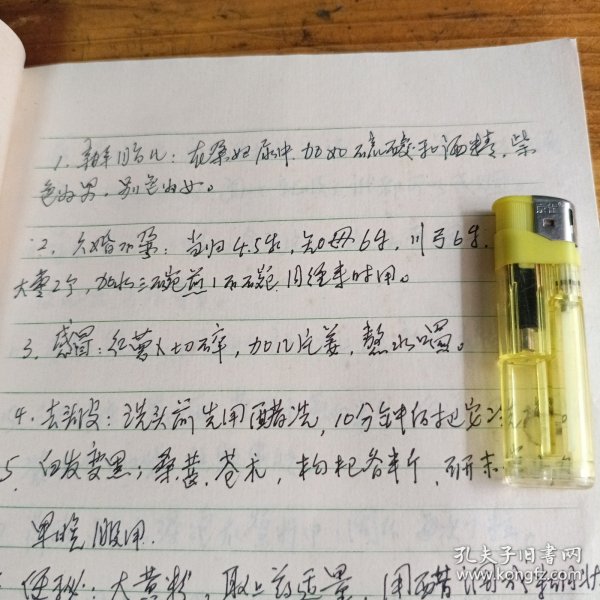 1. 胎儿：在孕妇尿中加如硫酸和酒精，紫
色为男，别色为女。
2. 久婚不孕：当归4.5钱，知母6钱，川弓6钱，
大枣2个，加水三碗煎1碗，月经来时用。
3. 感冒：红萝卜切碎，加几片姜，熬水喝。
4. 去头皮：洗头前先用醋洗，10分钟后把
5. 白发变黑：桑葚、苍术，枸杞各半斤，研末
早晚服用.
便秘：大黄粉，取适量，用醋调
孔夫子旧书网
www.kongfz.com